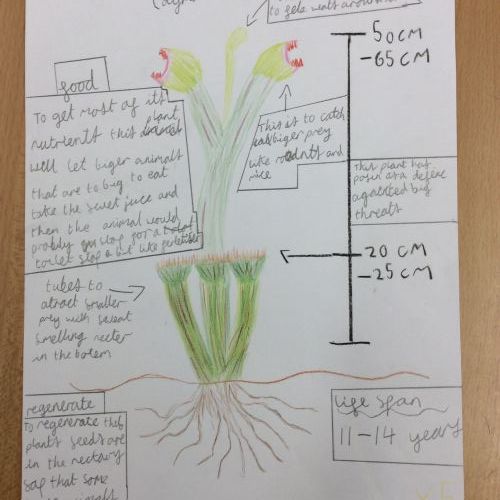 to gets wats around
food
To get most of its
plant
nutrients this
well let biger animals
that are to big to eat
take the sweet juice and
then the animal would
probly stop for a
toilet stop a bit like
This is to catch
biger prey
like rodents and
mice
50 CM
-65 CM
This plant has
posin as a defense
against big
threats
20 CM
-25 CM
tubes to
atract smaller
prey with sweat
smelling necter
in the botem
regenerate
To regenerate this
plants seeds are
in the nectary
sap that some
life span
11-14 years